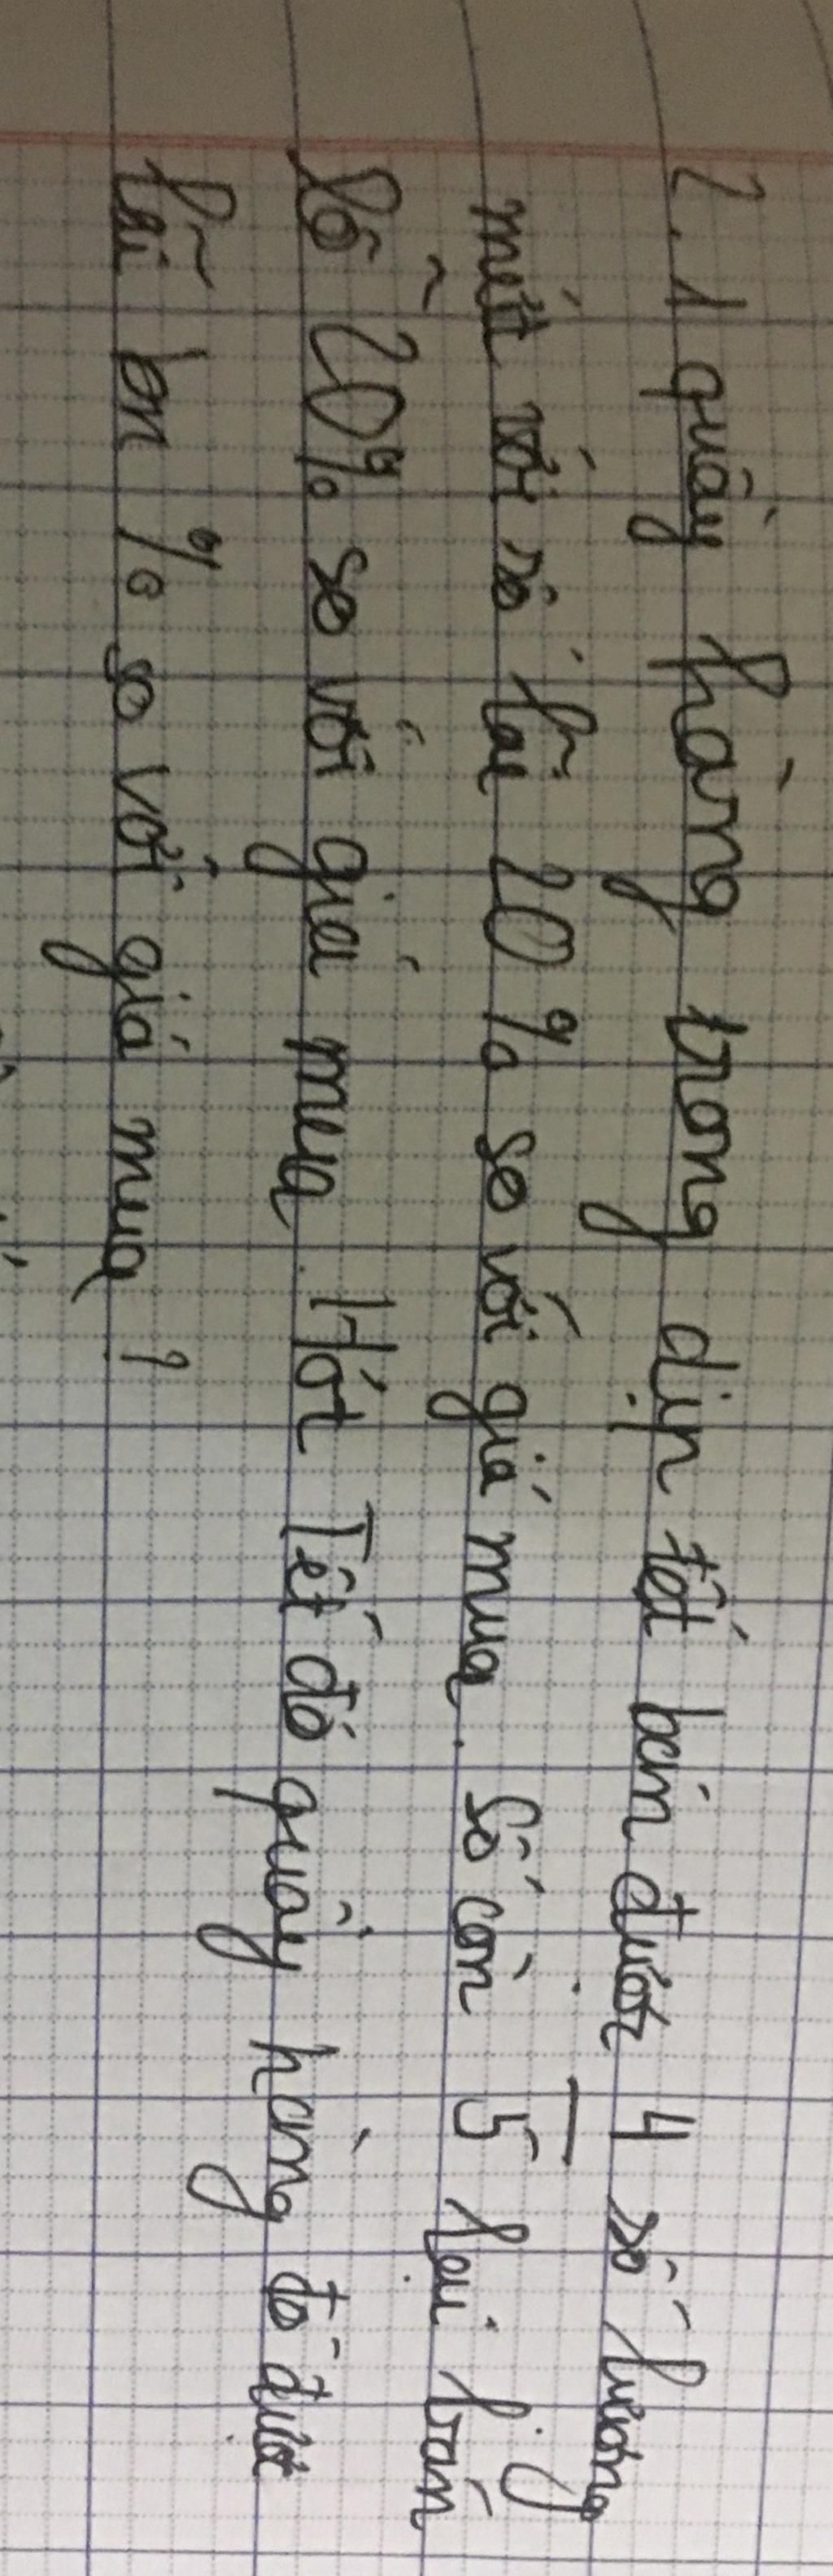 2. 1 quầy hàng trong dịp tết bán được 4/5 số lượng
mứt với số lãi 20% so với giá mua. Số còn lại bán
lỗ 20% so với giá mua. Hết Tết đó quầy hàng đó được
lãi bn % so với giá mua ?